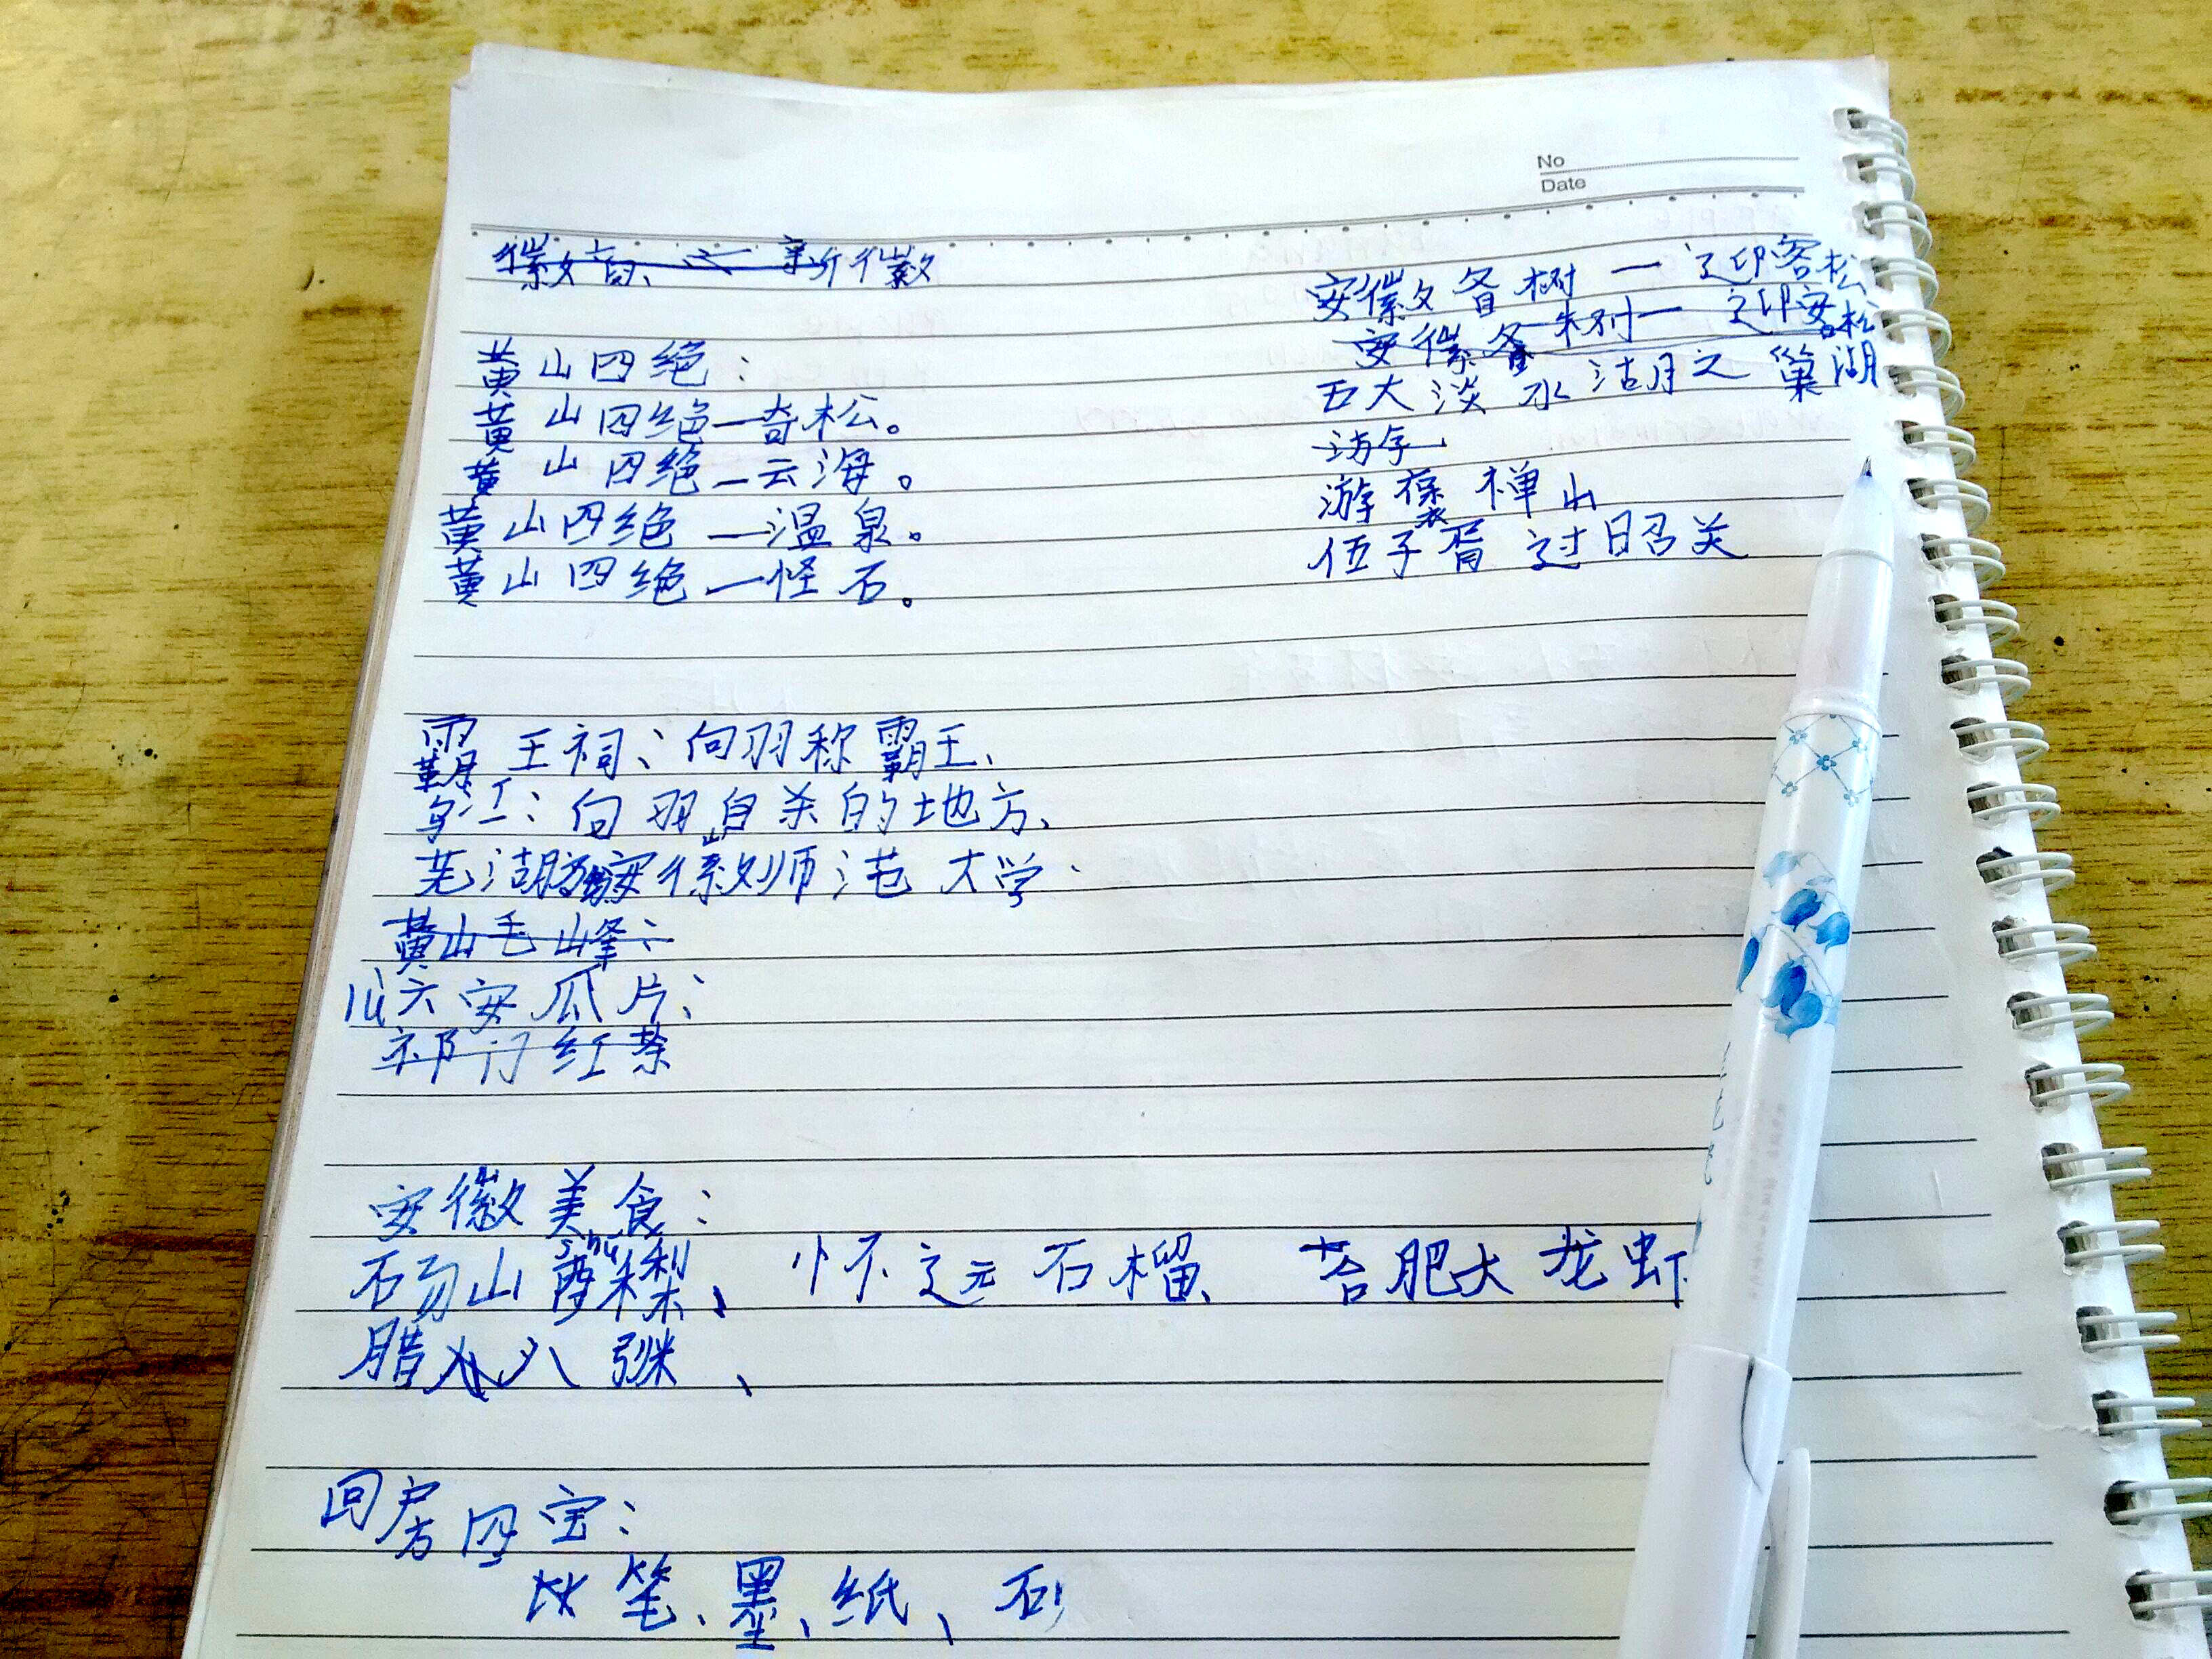 No
Date
徽音之新徽
黄山四绝：
黄山四绝—奇松。
黄山四绝—云海。
黄山四绝—温泉。
黄山四绝—怪石。
安徽省树—迎客松
安徽省树—迎客松
五大淡水湖之巢湖
游
游褒禅山
伍子胥过昭关
霸王祠：向羽称霸王、
乌江：向羽自杀的地方、
芜湖 安徽师范大学
黄山毛峰：
六安瓜片：
祁门红茶
安徽美食：
砀山酥梨、 怀远石榴、 合肥大龙虾
shu
腊八粥、
四宝：
笔、墨、纸、